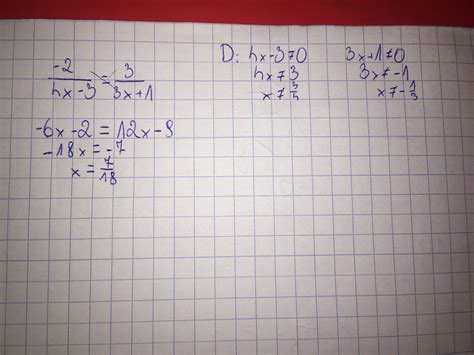 -2/4x-3 = 3/3x+1
-6x-2=12x-9
-18x=-7
x=7/18
D: 4x-3≠0
4x≠3
x≠3/4
3x+1≠0
3x≠-1
x≠-1/3